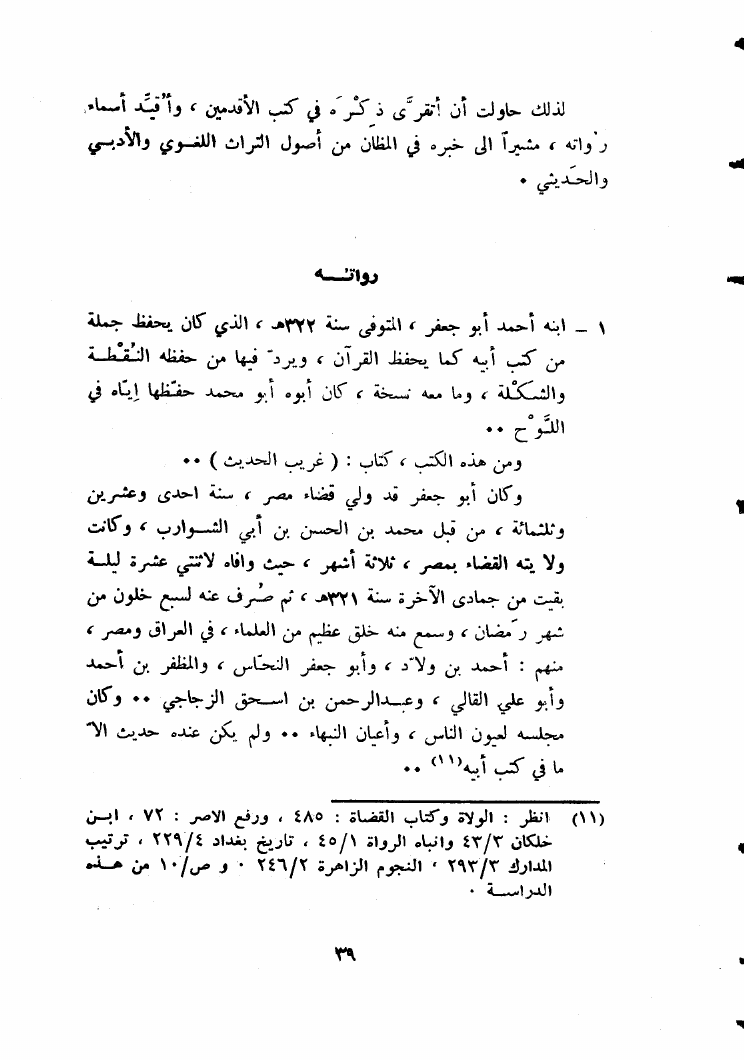 لذلك حاولت أن أتقرَّى ذِكْرَه في كتب الأقدمين ، وأُقَيِّد أسماء
رُواته ، مشيراً الى خبره في المظان من أصول التراث اللغـوي والأدبـي
والحَديثي .
رواتــه
١ ــ ابنه أحمد أبو جعفر ، المتوفى سنة ٣٢٢هـ ، الذي كان يحفظ جملة
من كتب أبيه كما يحفظ القرآن ، ويردّ فيها من حفظه النُقْطـة
والشـكْلة ، وما معه نسخة ، كان أبوه أبو محمد حفّظها إيّاه في
اللَّوْح ..
ومن هذه الكتب ، كتاب : ( غريب الحديث ) ..
وكان أبو جعفر قد ولي قضاء مصر ، سنة احدى وعشرين
وثلثمائة ، من قبل محمد بن الحسن بن أبي الشـوارب ، وكانت
ولا يته القضاء بمصر ، ثلاثة أشهر ، حيث وافاه لاثنتي عشرة ليلـة
بقيت من جمادى الآخرة سنة ٣٢١هـ ، ثم صُرف عنه لسبع خلون من
شهر رَمضان ، وسمع منه خلق عظيم من العلماء ، في العراق ومصر ،
منهم : أحمد بن ولاّد ، وأبو جعفر النحّاس ، والمظفر بن أحمد
وأبو علي القالي ، وعبـدالرحمن بن اسـحق الزجاجي .. وكان
مجلسه لعيون الناس ، وأعيان النبهاء .. ولم يكن عنده حديث الاّ
ما في كتب أبيه(١١) ..
(١١) انظر : الولاة وكتاب القضاة : ٤٨٥ ، ورفع الاصر : ٧٢ ، ابـن
خلكان ٤٣/٣ وانباه الرواة ٤٥/١ ، تاريخ بغداد ٢٢٩/٤ ، ترتيب
المدارك ٢٩٣/٣ ، النجوم الزاهرة ٢٤٦/٢ . و ص/١٠ من هـذه
الدراسـة .
٣٩